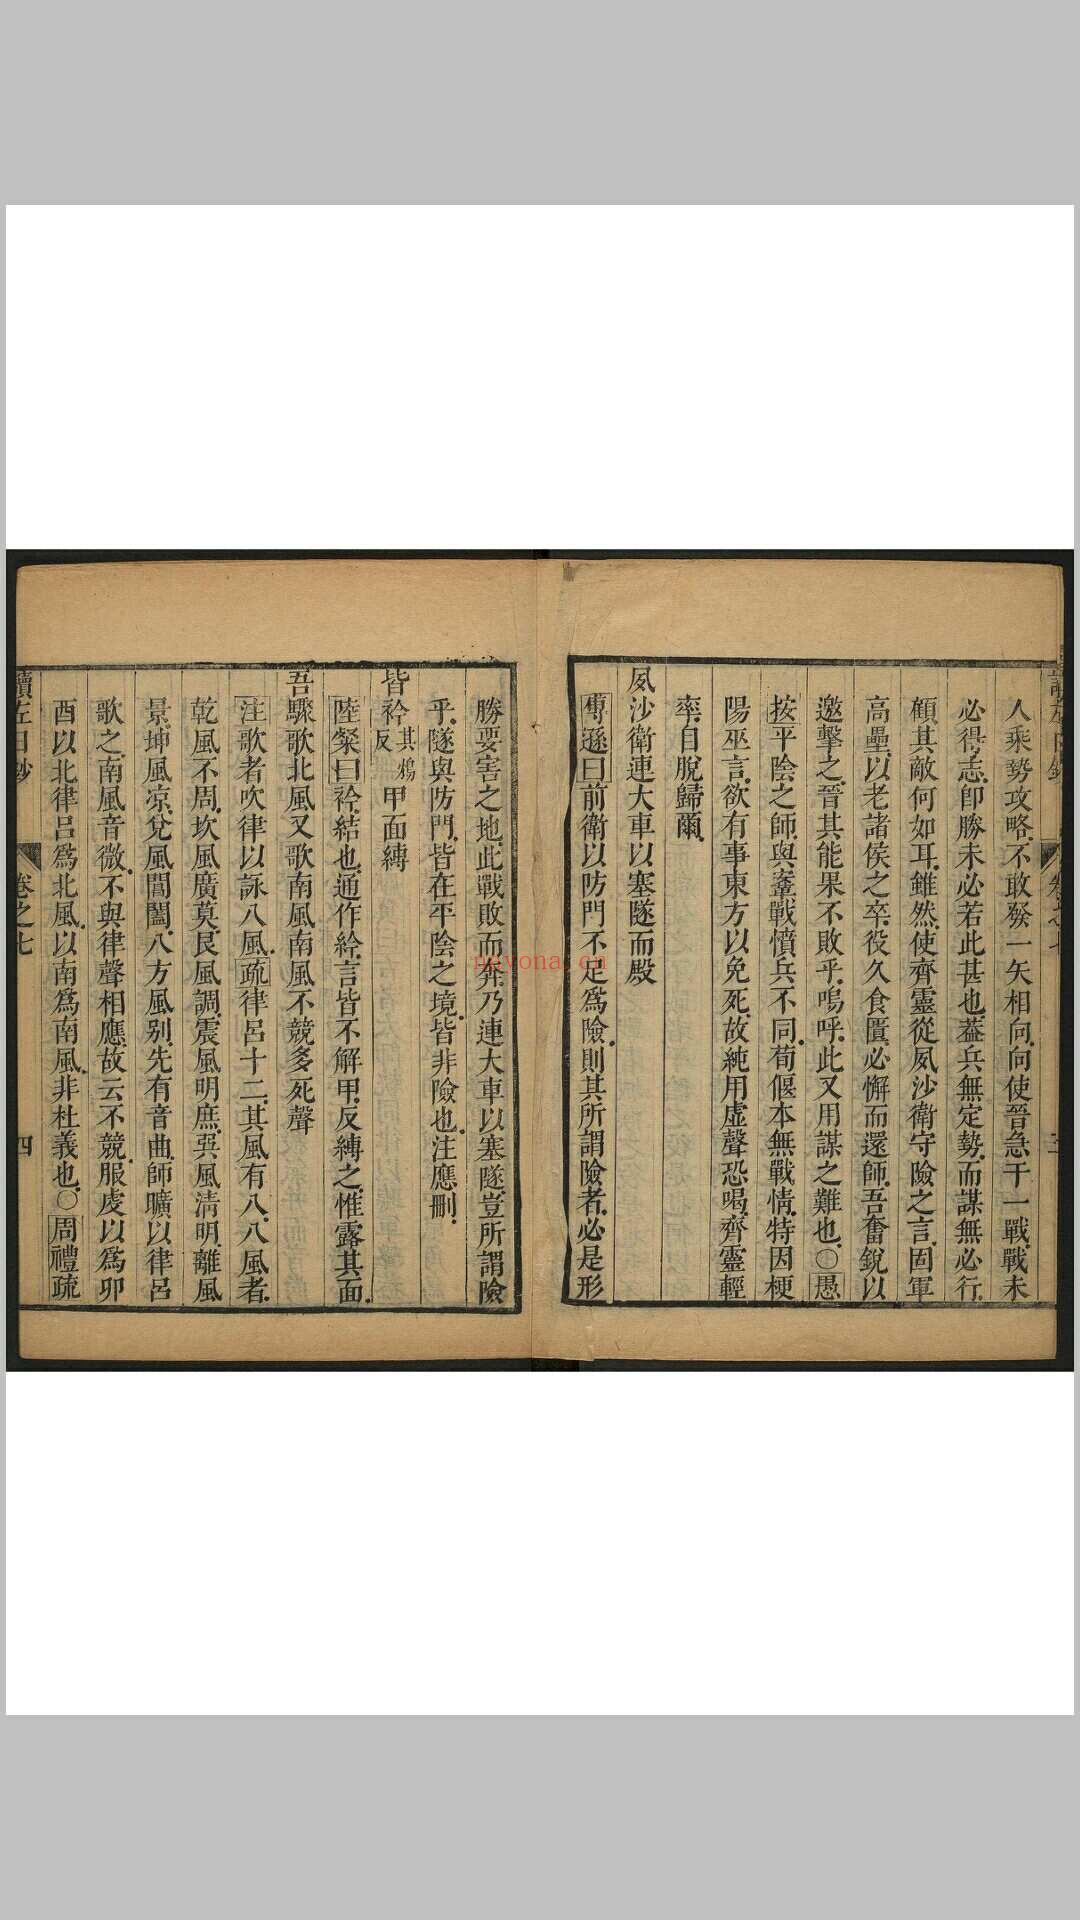 人乘勢攻略不敢發一矢相向向使晉急于一戰戰未
必得志卽勝未必若此甚也葢兵無定勢而謀無必行
顧其敵何如耳雖然使齊靈從夙沙衛守險之言固軍
高壘以老諸侯之卒役久食匱必懈而還師吾奮銳以
邀擊之晉其能果不敗乎嗚呼此又用謀之難也〇愚
按平陰之師與鞌戰憤兵不同荀偃本無戰情特因梗
陽巫言欲有事東方以免死故純用虛聲恐喝齊靈輕
率自脫歸爾
夙沙衛連大車以塞隧而殿
傅遜曰前衛以防門不足爲險則其所謂險者必是形
勝要害之地此戰敗而奔乃連大車以塞隧豈所謂險
乎隧與防門皆在平陰之境皆非險也注應刪
皆衿其鴆反甲面縛
陸粲曰衿結也通作紟言皆不解甲反縛之惟露其面
吾驟歌北風又歌南風南風不競多死聲
注歌者吹律以詠八風疏律呂十二其風有八八風者
乾風不周坎風廣莫艮風調震風明庶巽風清明離風
景坤風涼兌風閶闔八方風别先有音曲師曠以律呂
歌之南風音微不與律聲相應故云不競服虔以爲卯
酉以北律呂爲北風以南爲南風非杜義也〇周禮疏
讀左日鈔
卷之七
四
nayona.cn